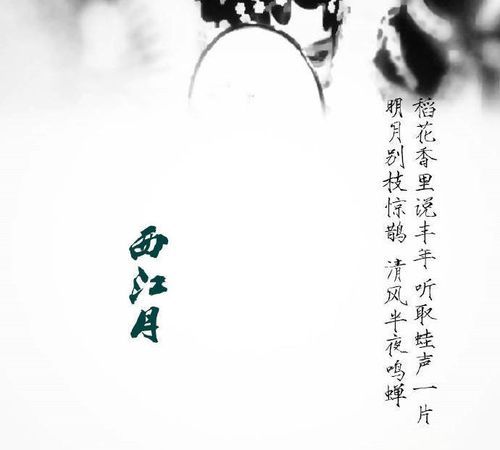 西江月
明月别枝惊鹊 清风半夜鸣蝉
稻花香里说丰年 听取蛙声一片